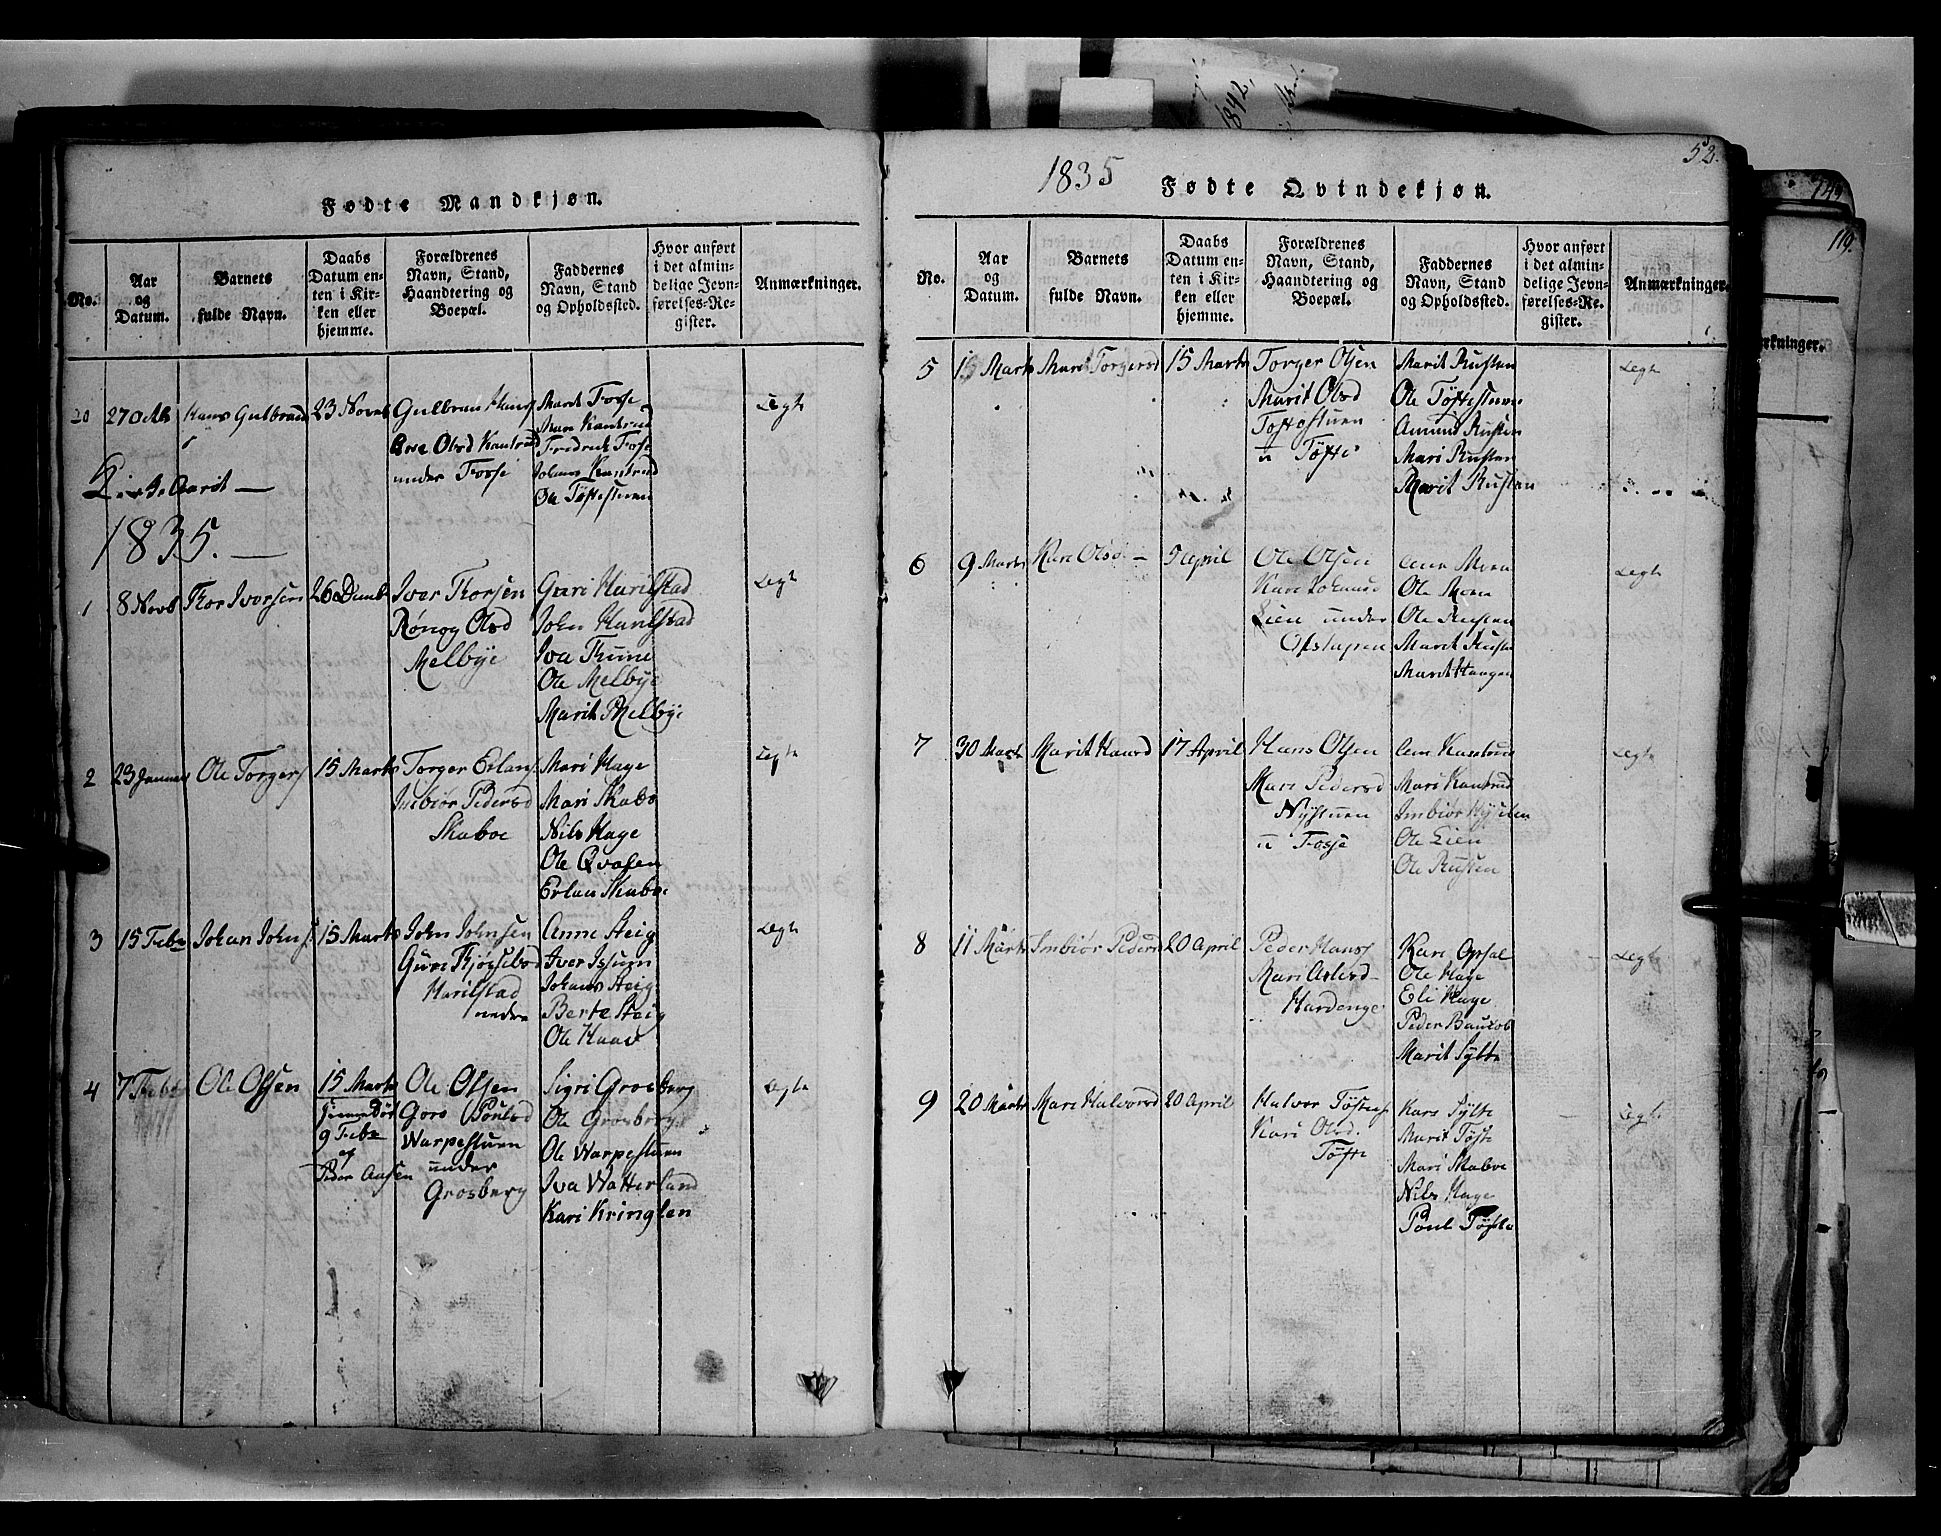 1842.
Fødte Mandkjøn.
No.
Aar
og
Datum.
Barnets
fulde Navn.
Daabs
Datum en-
ten i Kir-
ken eller
hjemme.
Forældrenes
Navn, Stand,
Haandtering og
Boepæl.
Faddernes
Navn, Stand
og Opholdssted.
Hvor anført
i det almin-
delige Jevn-
førelses-Re-
gister.
Anmærkninger.
20
27 Octb
Hans Gulbrand
23 Novb
Gulbran Hans
Olsd Kantrud
under Fosse
Marit Fosse
Mari Kantrud
Fredrik Fosse
Johans Kantrud
Ole Tøftestuen
Legte
1835.
1
8 Novb
Thor Iversen
26 Decmb
Iver Thorsen
Rønog Olsd
Melbye
Guri Harilstad
John Harilstad
Iva Thune
Ole Melbye
Marit Melbye
Legte
2
23 Januar
Ole Torgers
15 Marts
Torger Erlans
Imbiør Pedersd
Skaboe
Mari Hage
Mari Skabo
Nils Hage
Ole Qvalen
Erlan Skaboe
Legte
3
15 Feb
Johan Johns
15 Marts
John Johnsen
Guri
Harilstad
under
Anne Steig
Iver Issum
Johans Steig
Berte Steig
Ole Haav
Legte
4
7 Feb
Ole Olsen
15 Marts
hjemmedøbt
9 Feb
af
Peder Aasen
Ole Olsen
Goro Poulsd
Warpestuen
under
Grosberg
Sigri Grosberg
Ole Grosberg
Ole Warpestuen
Iva Watterland
Kari Kringlen
Legte
52.
1835
Fødte Qvindekjøn.
No.
Aar
og
Datum.
Barnets
fulde Navn.
Daabs
Datum en-
ten i Kir-
ken eller
hjemme.
Forældrenes
Navn, Stand,
Haandtering og
Boepæl.
Faddernes
Navn, Stand,
og Opholdssted.
Hvor anført
i det almin-
delige Jevn-
førelses-Re-
gister.
Anmærkninger.
5
15 Marts
Marit Torgersd
15 Marts
Torger Olsen
Marit Olsd
Tøftestuen
u Tøfte
Marit Rusten
Ole Tøftestuen
Amund Rusten
Mari Rusten
Marit Rusten
Legte
6
9 Marts
Kari Olsd
5 April
Ole Olsen
Kari Johansd
Lien under
Opstapen
Ann Moen
Ole Moen
Ole Rusten
Marit Rusten
Marit Haugen
Legte
7
30 Marts
Marit Hansd
17 April
Hans Olsen
Mari Pedersd
Nystuen
u Fosse
Ann Kantrud
Mari Kantrud
Imbiør Nystuen
Ole Lien
Ole Rusten
Legte
8
11 Marts
Imbiør Pedersd
20 April
Peder Hans
Mari
Hardenge
Kari Opsal
Ole Hage
Eli Hage
Peder
Marit Sylte
Legte
9
20 Marts
Mari Halvorsd
20 April
Halvor
Kari Olsd.
Tøfte
Kari Sylte
Marit Tøfte
Mari Skaboe
Nils Hage
Poul Tøfte
Legte
119.
rkninger.